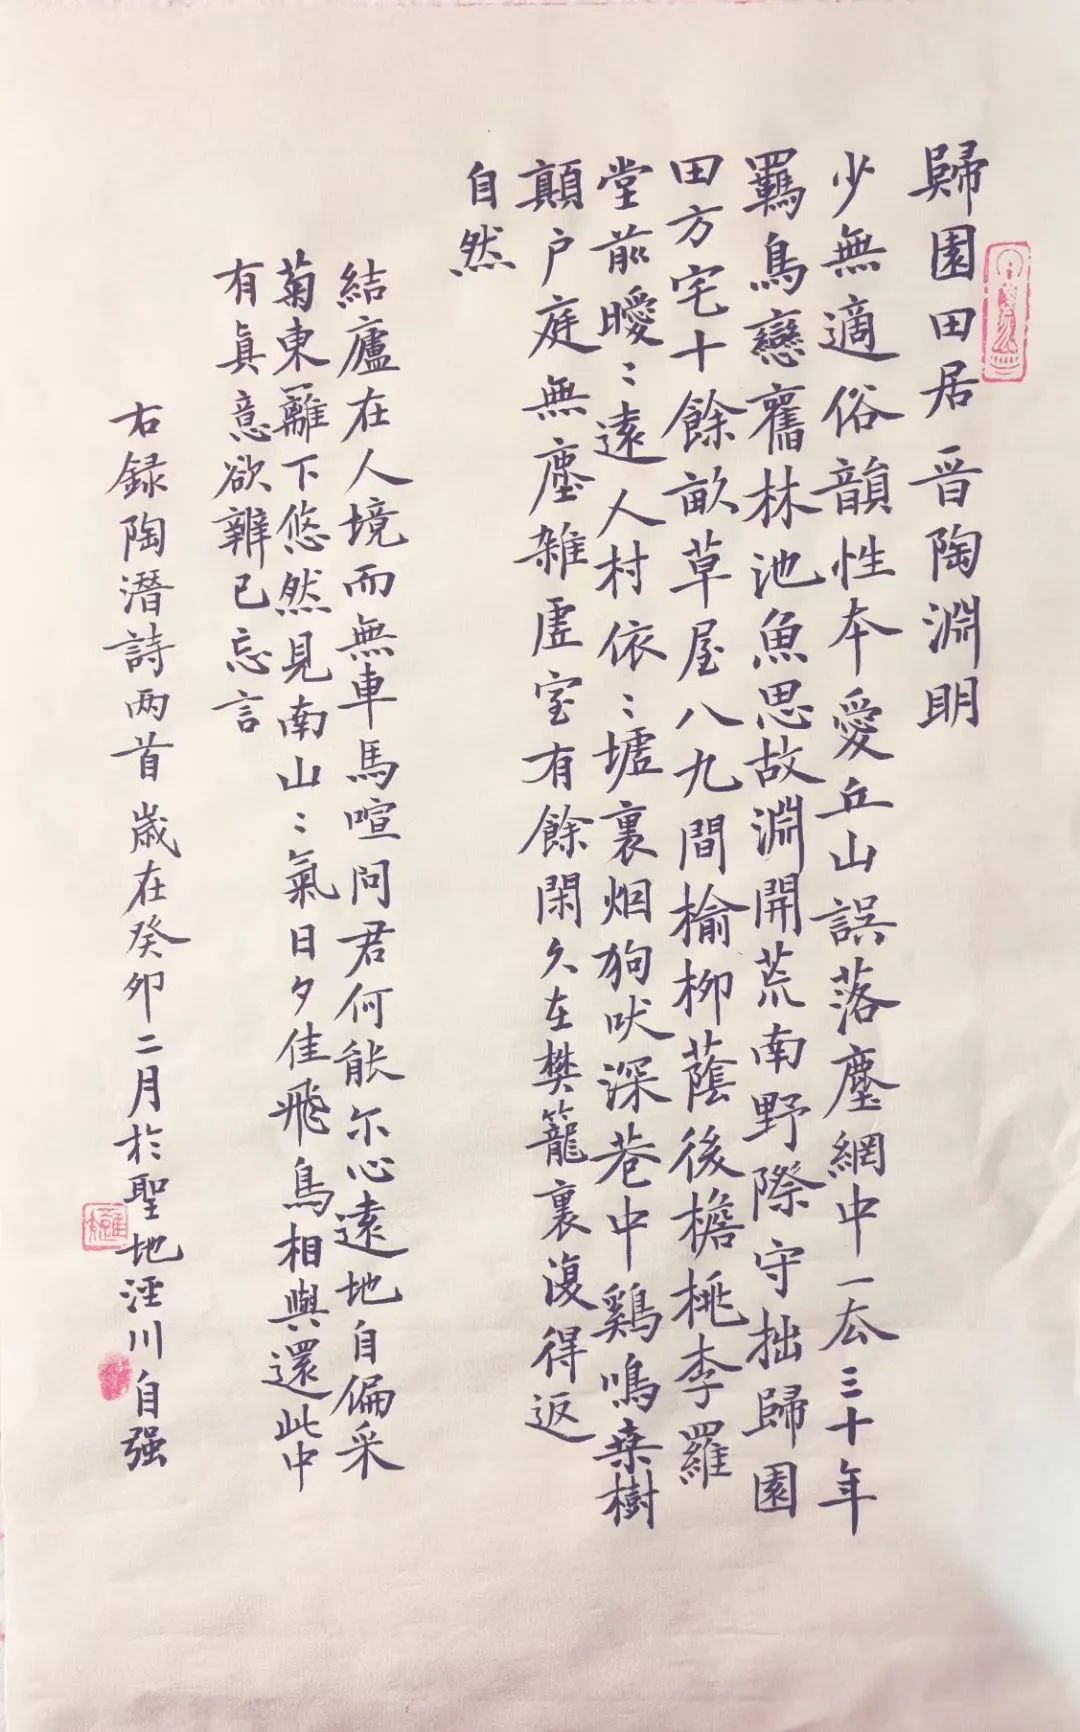 歸園田居晉陶淵明
少無適俗韻性本愛丘山誤落塵網中一去三十年
羈鳥戀舊林池魚思故淵開荒南野際守拙歸園
田方宅十餘畝草屋八九間榆柳蔭後檐桃李羅
堂前曖〻遠人村依〻墟裏烟狗吠深巷中鷄鳴桑樹
顛户庭無塵雜虛室有餘閑久在樊籠裏復得返
自然
結廬在人境而無車馬喧問君何能尔心遠地自偏采
菊東籬下悠然見南山〻氣日夕佳飛鳥相與還此中
有真意欲辨已忘言
右録陶潛詩两首歲在癸卯二月於聖地涇川自强